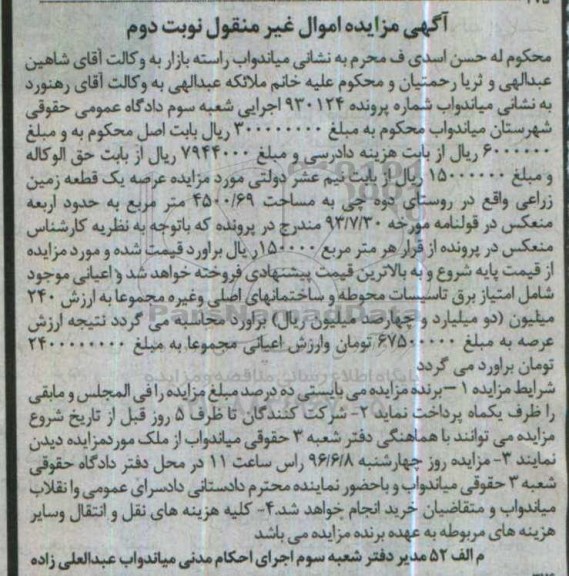 آگهی مزایده اموال غیر منقول نوبت دوم
محکوم له حسن اسدی ف محرم به نشانی میاندواب راسته بازار به وکالت آقای شاهین
عبدالهی و ثریا رحمتیان و محکوم علیه خانم ملائکه عبدالهی به وکالت آقای رهنورد
به نشانی میاندواب شماره پرونده ۹۳۰۱۲۴ اجرایی شعبه سوم دادگاه عمومی حقوقی
شهرستان میاندواب محکوم به مبلغ ۳۰۰۰۰۰۰۰۰ ریال بابت اصل محکوم به و مبلغ
۶۰۰۰۰۰۰ ریال از بابت هزینه دادرسی و مبلغ ۷۹۴۴۰۰۰ ریال از بابت حق الوکاله
و مبلغ ۱۵۰۰۰۰۰۰ ریال از بابت نیم عشر دولتی مورد مزایده عرصه یک قطعه زمین
زراعی واقع در روستای دوه چی به مساحت ۴۵۰۰/۶۹ متر مربع به حدود اربعه
منعکس در قولنامه مورخه ۹۳/۷/۳۰ مندرج در پرونده که باتوجه به نظریه کارشناس
منعکس در پرونده از قرار هر متر مربع ۱۵۰۰۰۰ ریال براورد قیمت شده و مورد مزایده
از قیمت پایه شروع و به بالاترین قیمت پیشنهادی فروخته خواهد شد و اعیانی موجود
شامل امتیاز برق تاسیسات محوطه و ساختمانهای اصلی وغیره مجموعا به ارزش ۲۴۰
میلیون (دو میلیارد و چهارصد میلیون ریال) براورد محاسبه می گردد نتیجه ارزش
عرصه به مبلغ ۶۷۵۰۰۰۰۰ تومان وارزش اعیانی مجموعا به مبلغ ۲۴۰۰۰۰۰۰۰۰
تومان براورد می گردد
شرایط مزایده ۱–برنده مزایده می بایستی ده درصد مبلغ مزایده را فی المجلس و مابقی
را ظرف یکماه پرداخت نماید ۲- شرکت کنندگان تا ظرف ۵ روز قبل از تاریخ شروع
مزایده می توانند با هماهنگی دفتر شعبه ۳ حقوقی میاندواب از ملک موردمزایده دیدن
نمایند ۳- مزایده روز چهارشنبه ۹۶/۶/۸ راس ساعت ۱۱ در محل دفتر دادگاه حقوقی
شعبه ۳ حقوقی میاندواب و باحضور نماینده محترم دادستانی دادسرای عمومی وانقلاب
میاندواب و متقاضیان خرید انجام خواهد شد.۴- کلیه هزینه های نقل و انتقال وسایر
هزینه های مربوطه به عهده برنده مزایده می باشد
م الف ۵۲ مدیر دفتر شعبه سوم اجرای احکام مدنی میاندواب عبدالعلی زاده